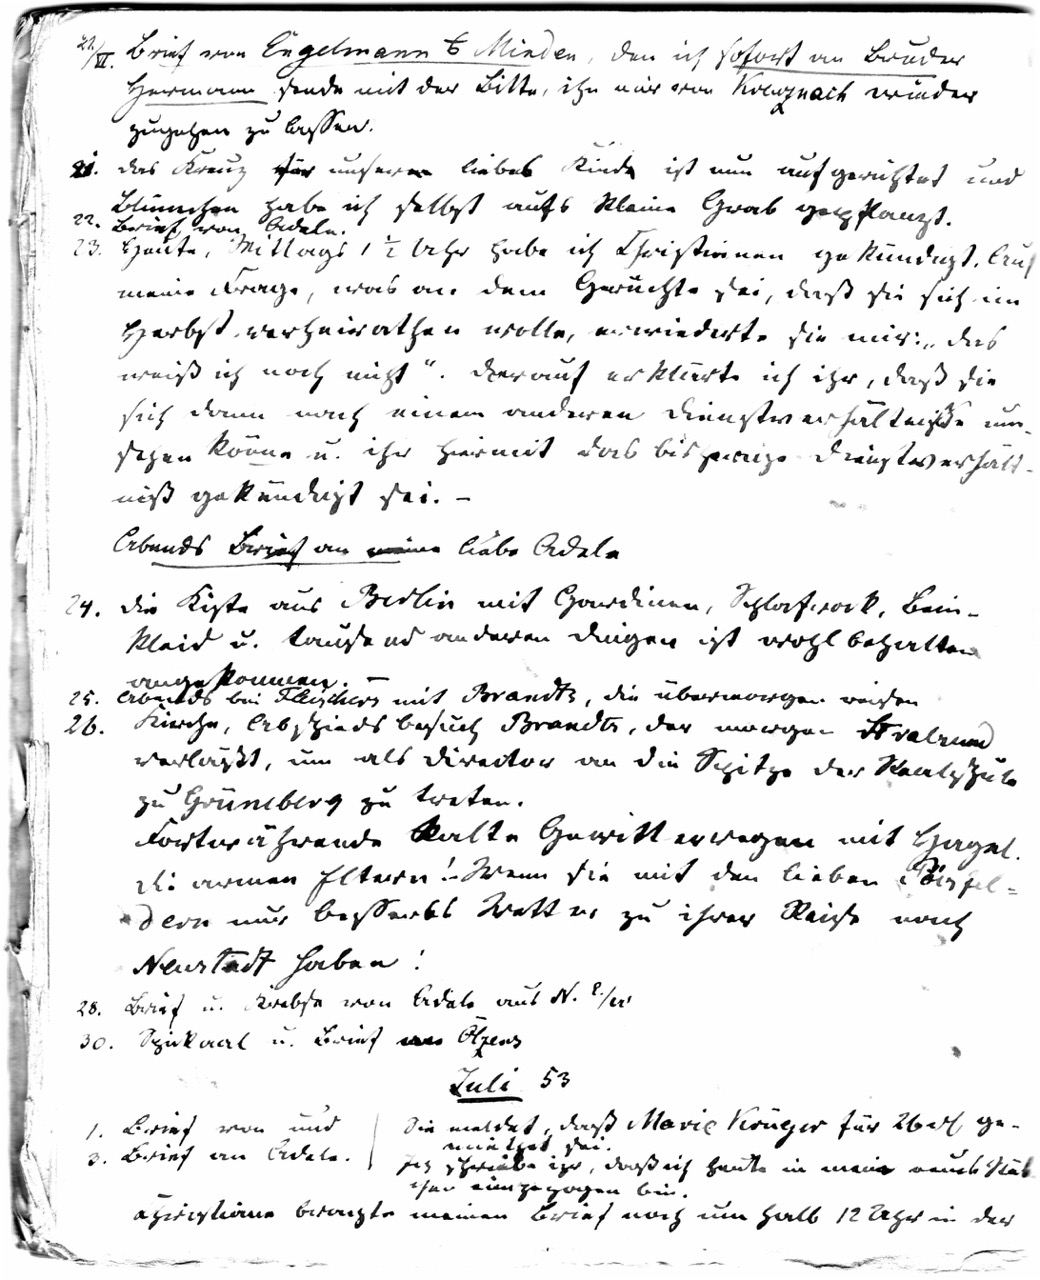 21./VI. Brief von Engelmann & Minden, den ich sofort an Bruder
Hermann sende mit der Bitte, ihn mir von Kreuznach wieder
zugehen zu lassen.
21. das Kreuz für unser liebes Kind ist nun aufgerichtet und
Blümchen habe ich selbst aufs kleine Grab gepflanzt.
22. Brief von Adele.
23. Heute, Mittags 1 ½ Uhr habe ich Christianen gekündigt. Auf
meine Frage, was an dem Gerüchte sei, daß sie sich im
Herbst verheirathen wolle, erwiederte sie mir: „das
weiß ich noch nicht“. Darauf erklärte ich ihr, daß sie
sich dann nach einem anderen Dienstverhältniße um-
sehen könne u. ihr hiermit das bisherige Dienstverhält-
niß gekündigt sei. –
Abends Brief an meine liebe Adele
24. die Kiste aus Berlin mit Gardinen, Schlafrock, Bein-
kleid u. tausend anderen Dingen ist wohlbehalten
angekommen. –
25. Abends bei Fleischers mit Brandts, die übermorgen reisen
26. Kirche, Abschiedsbesuch Brandts, der morgen Stralsund
verläßt, um als Director an die Spitze der Realschule
zu Grüneberg zu treten.
Fortwährende kalte Gewitterregen mit Hagel.
Die armen Eltern! Wenn sie mit den lieben
dern nur besseres Wetter zu ihrer Reise nach
Neustadt haben!
28. Brief u. Krebse von Adele aus N.
30. Spickaal u. Brief
Juli 53
1. Brief von und
3. Brief an Adele.
Sie meldet, daß Marie Krüger für 26 ge-
miethet sei.
Ich schreibe ihr, daß ich heute in mein neues Stüb
chen eingezogen bin.
Christiane brachte meinen Brief noch um halb 12 Uhr in der